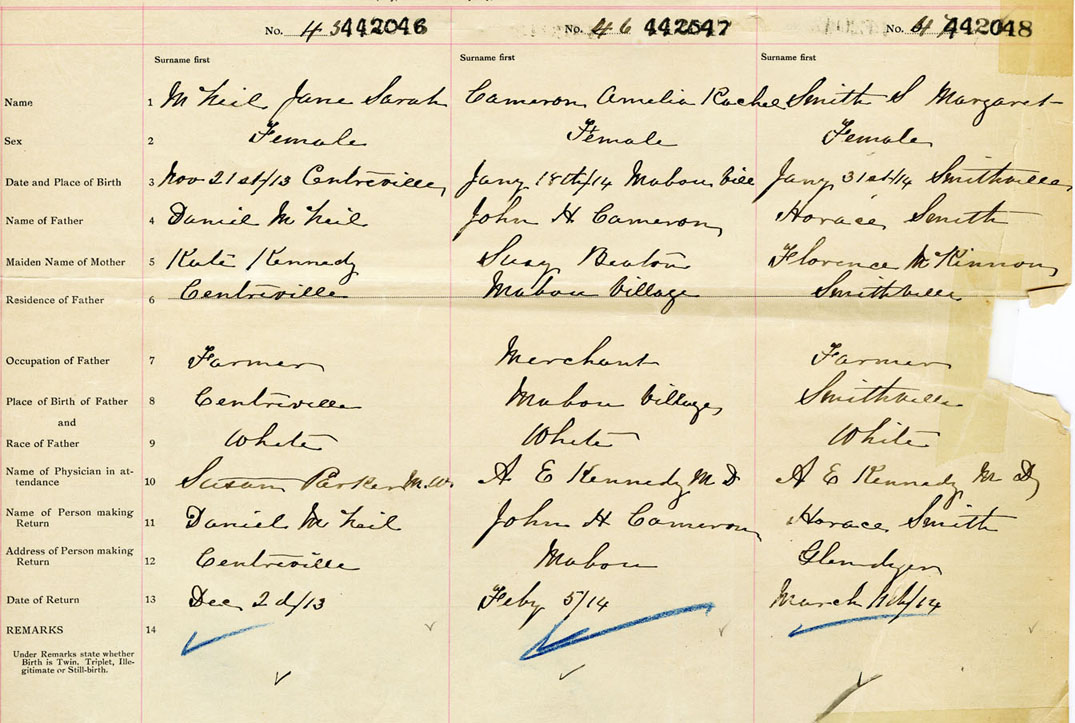 No. 45 442046 No. 46 442547 No. 47 442048
Surname first Surname first Surname first
Name 1 McNeil Jane Sarah Cameron Amelia Rachel Smith S Margaret
Sex 2 Female Female Female
Date and Place of Birth 3 Nov 21st/13 Centreville Jany 18th/14 Mabou Vill Jany 31st/14 Smithville
Name of Father 4 Daniel McNeil John H Cameron Horace Smith
Maiden Name of Mother 5 Kate Kennedy Susy Beaton Florence McKinnon
Residence of Father 6 Centreville Mabou Village Smithville
Occupation of Father 7 Farmer Merchant Farmer
Place of Birth of Father 8 Centreville Mabou Village Smithville
and
Race of Father 9 White White White
Name of Physician in at-
tendance 10 Susan Parker M.W. A E Kennedy M D A E Kennedy M D
Name of Person making
Return 11 Daniel McNeil John H Cameron Horace Smith
Address of Person making
Return 12 Centreville Mabou Glendyer
Date of Return 13 Dec 2d/13 Feby 5/14 March /14
REMARKS 14
Under Remarks state whether
Birth is Twin, Triplet, Ille-
gitimate or Still-birth.